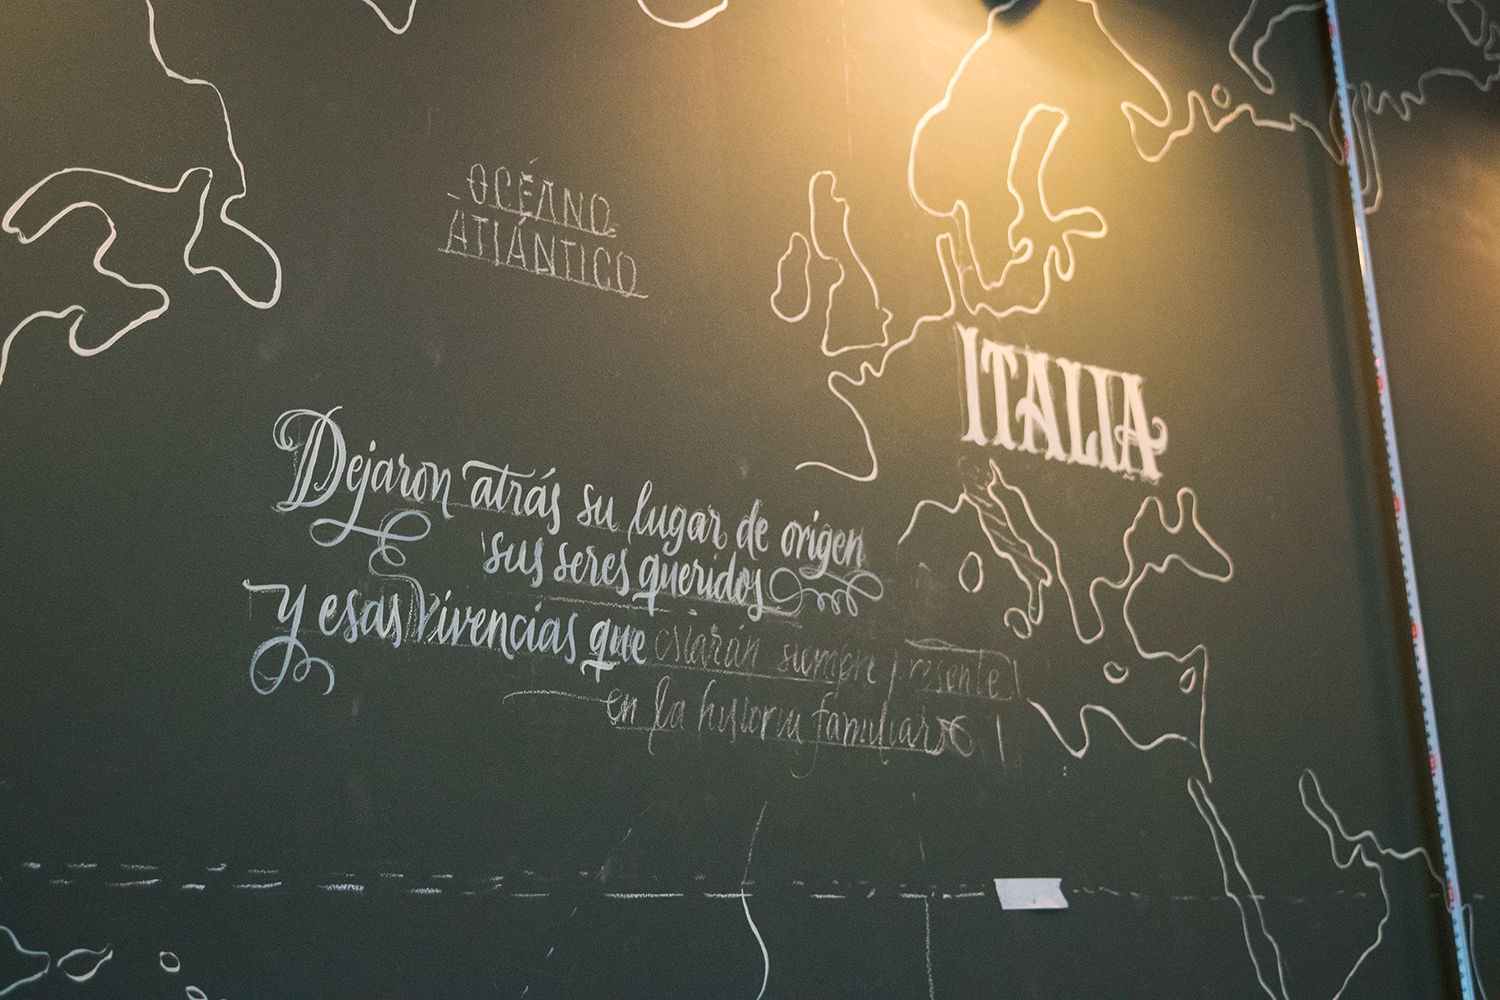 OCÉANO
ATLÁNTICO
ITALIA
Dejaron atrás su lugar de origen
sus seres queridos
y esas vivencias que estarán siempre presente
en la historia familiar